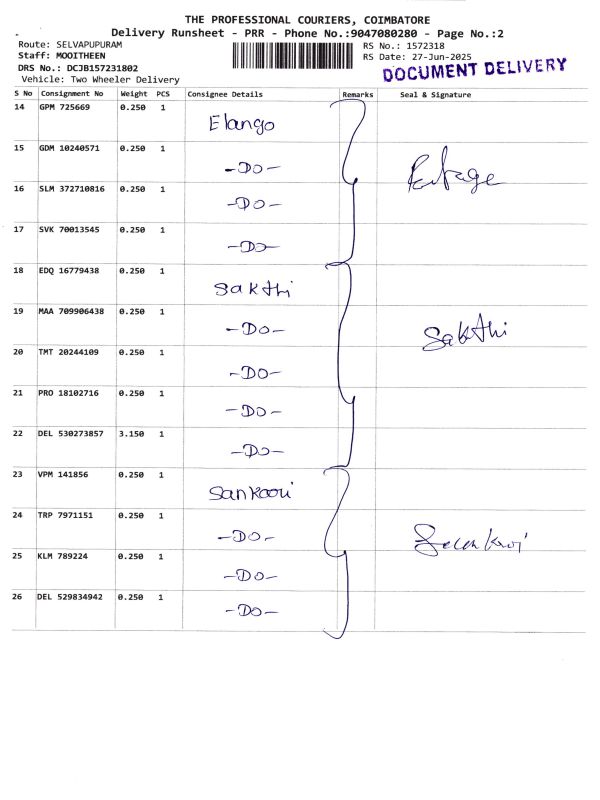 THE PROFESSIONAL COURIERS, COIMBATORE
Delivery Runsheet - PRR - Phone No.:9047080280 - Page No.:2
Route: SELVAPUPURAM
Staff: MOOITHEEN
DRS No.: DCJB157231802
Vehicle: Two Wheeler Delivery
RS No.: 1572318
RS Date: 27-Jun-2025
DOCUMENT DELIVERY
S No Consignment No Weight PCS Consignee Details Remarks Seal & Signature
14 GPM 725669 0.250 1 Elango
15 GDM 10240571 0.250 1 -DO-
16 SLM 372710816 0.250 1 -DO-
17 SVK 70013545 0.250 1 -DO-
18 EDQ 16779438 0.250 1 Sakthi
19 MAA 709906438 0.250 1 -DO- Sakthi
20 TMT 20244109 0.250 1 -DO-
21 PRO 18102716 0.250 1 -DO-
22 DEL 530273857 3.150 1 -DO-
23 VPM 141856 0.250 1
24 TRP 7971151 0.250 1 -DO-
25 KLM 789224 0.250 1 -DO-
26 DEL 529834942 0.250 1 -DO-